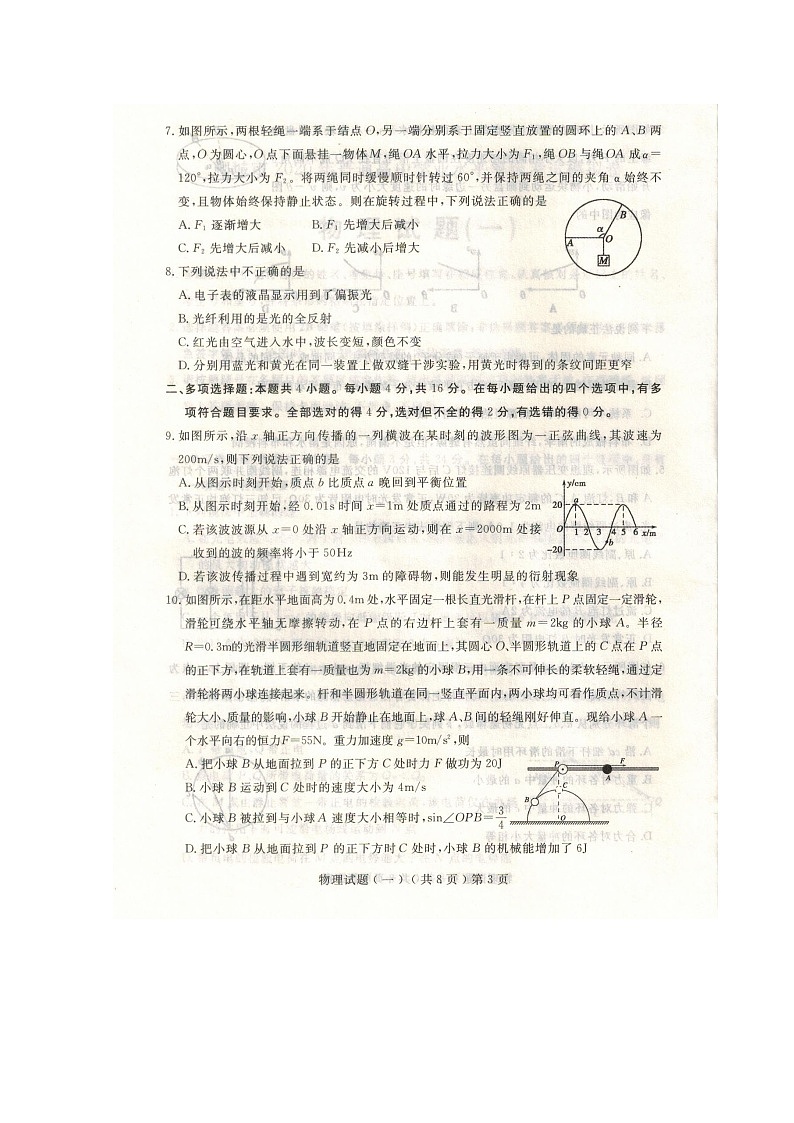 7. 如图所示,两根轻绳一端系于结点 O,另一端分别系于固定竖直放置的圆环上的 A、B 两
点,O 为圆心,O 点下面悬挂一物体 M,绳 OA 水平,拉力大小为 F₁,绳 OB 与绳 OA 成 α=
120°,拉力大小为 F₂。将两绳同时缓慢顺时针转过 60°,并保持两绳之间的夹角 α 始终不
变,且物体始终保持静止状态。则在旋转过程中,下列说法正确的是
A. F₁ 逐渐增大 B. F₁ 先增大后减小
C. F₂ 先增大后减小 D. F₂ 先减小后增大
A B α O M
8. 下列说法中不正确的是
A. 电子表的液晶显示用到了偏振光
B. 光纤利用的是光的全反射
C. 红光由空气进入水中,波长变短,颜色不变
D. 分别用蓝光和黄光在同一装置上做双缝干涉实验,用黄光时得到的条纹间距更窄
二、多项选择题:本题共 4 小题。每小题 4 分,共 16 分。在每小题给出的四个选项中,有多
项符合题目要求。全部选对的得 4 分,选对但不全的得 2 分,有选错的得 0 分。
9. 如图所示,沿 x 轴正方向传播的一列横波在某时刻的波形图为一正弦曲线,其波速为
200m/s,则下列说法正确的是
A. 从图示时刻开始,质点 b 比质点 a 晚回到平衡位置
B. 从图示时刻开始,经 0.01s 时间 x=1m 处质点通过的路程为 2m
C. 若该波波源从 x=0 处沿 x 轴正方向运动,则在 x=2000m 处接
收到的波的频率将小于 50Hz
D. 若该波传播过程中遇到宽约为 3m 的障碍物,则能发生明显的衍射现象
y/cm
20 a
O 1 2 3 4 5 6 x/m
b
-20
10. 如图所示,在距水平地面高为 0.4m 处,水平固定一根长直光滑杆,在杆上 P 点固定一定滑轮,
滑轮可绕水平轴无摩擦转动,在 P 点的右边杆上套有一质量 m=2kg 的小球 A。半径
R=0.3m的光滑半圆形细轨道竖直地固定在地面上,其圆心 O、半圆形轨道上的 C 点在 P 点
的正下方,在轨道上套有一质量也为 m=2kg 的小球 B,用一条不可伸长的柔软轻绳,通过定
滑轮将两小球连接起来。杆和半圆形轨道在同一竖直平面内,两小球均可看作质点,不计滑
轮大小、质量的影响,小球 B 开始静止在地面上,球 A、B 间的轻绳刚好伸直。现给小球 A 一
个水平向右的恒力F=55N。重力加速度 g=10m/s²,则
A. 把小球 B 从地面拉到 P 的正下方 C 处时力 F 做功为 20J
B. 小球 B 运动到 C 处时的速度大小为 4m/s
C. 小球 B 被拉到与小球 A 速度大小相等时,sin∠OPB=3/4
D. 把小球 B 从地面拉到 P 的正下方时 C 处时,小球 B 的机械能增加了 6J
P F A C B O
物理试题(一)(共 8 页)第 3 页